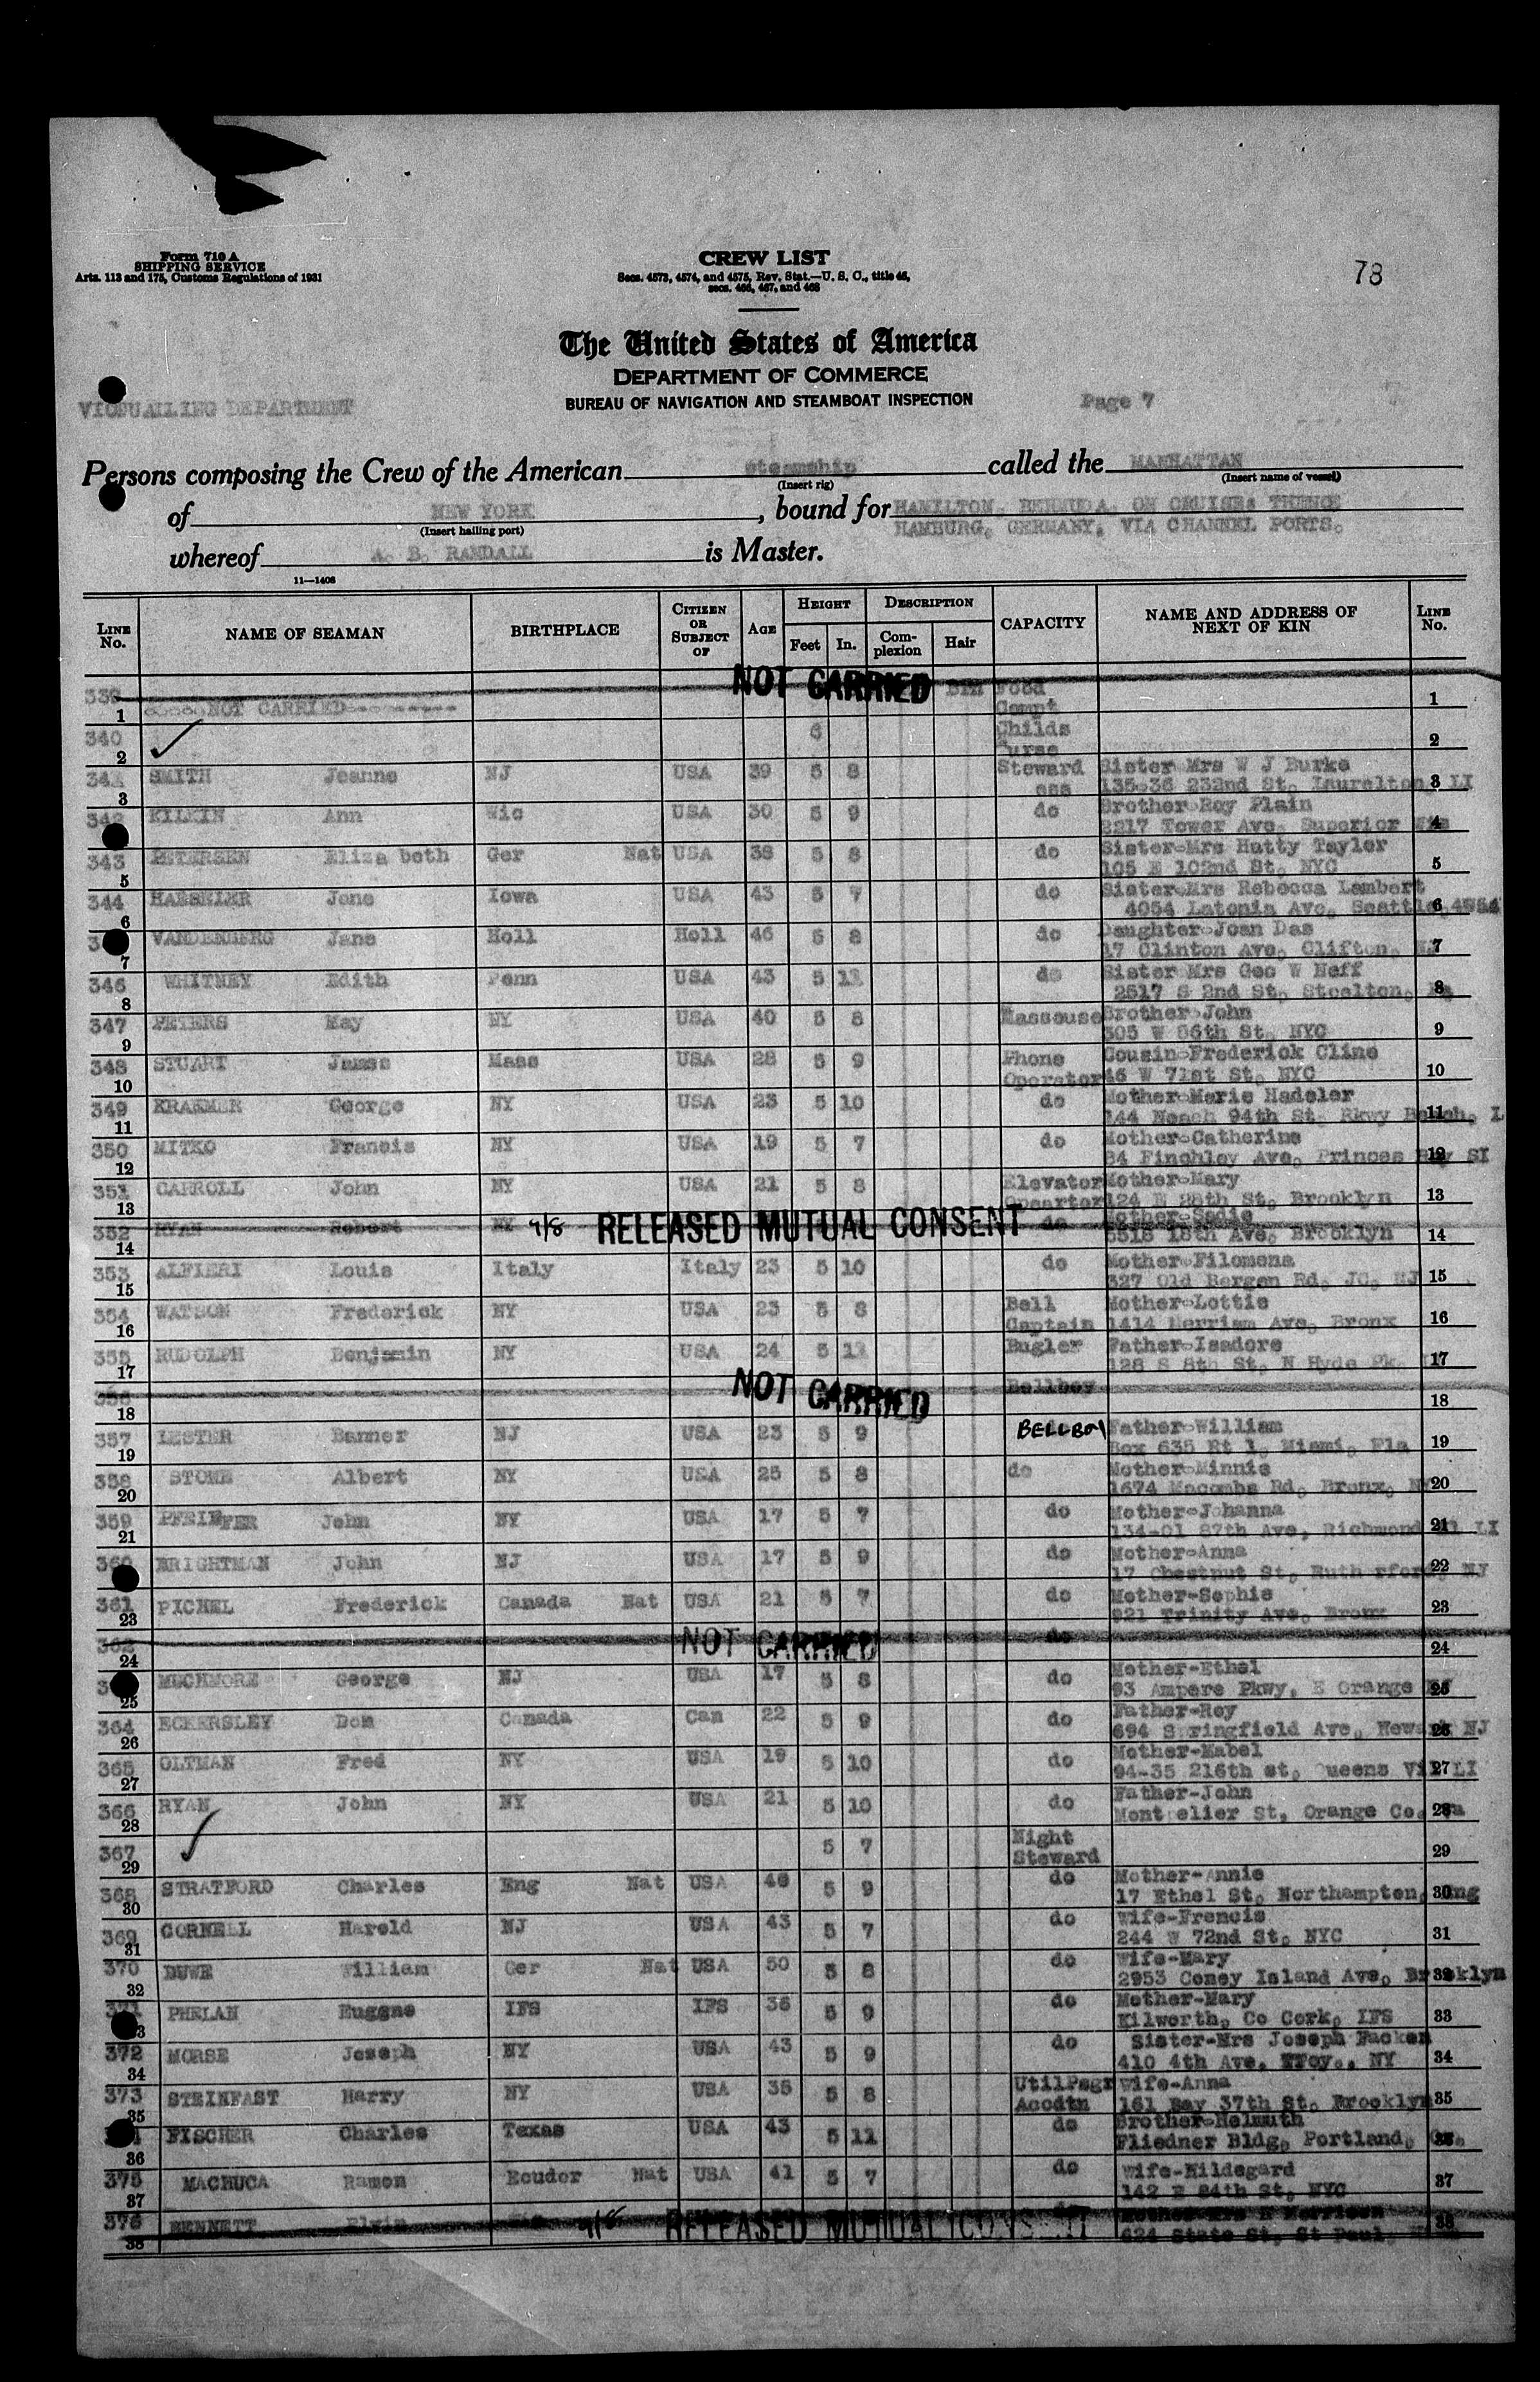 Form 710 A
SHIPPING SERVICE
Arts. 113 and 175, Customs Regulations of 1931
CREW LIST
Secs. 4573, 4574, and 4575, Rev. Stat.—U. S. C., title 46,
secs. 465, 467, and 468
78
The United States of America
DEPARTMENT OF COMMERCE
BUREAU OF NAVIGATION AND STEAMBOAT INSPECTION
DEPARTMENT
Page 7
Persons composing the Crew of the American steamship called the MANHATTAN
(Insert rig) (Insert name of vessel)
of NEW YORK, bound for HAMILTON, BERMUDA, ON CRUISE; THENCE
(Insert hailing port) HAMBURG, GERMANY, VIA CHANNEL PORTS.
whereof A. B. RANDALL is Master.
11—1408
LINE No. NAME OF SEAMAN BIRTHPLACE CITIZEN OR SUBJECT OF AGE HEIGHT Feet In. DESCRIPTION Complexion Hair CAPACITY NAME AND ADDRESS OF NEXT OF KIN LINE No.
339 1 NOT CARRIED NOT CARRIED Food 1
340 2 6 Childs 2
3 SMITH Jeanne NJ USA 39 5 8 Steward ess Sister-Mrs W J Burke 3
135-36 232nd St, Laurelton, LI
342 KILKIN Ann Wic USA 30 5 9 do Brother-Roy Plain 4
2217 Tower Ave, Superior
343 5 PETERSEN Eliza beth Ger Nat USA 38 5 8 do Sister-Mrs Hatty Taylor 5
105 E 102nd St, NYC
344 6 HAESELER Jane Iowa USA 43 5 7 do Sister-Mrs Rebecca Lambert 6
4054 Latonia Ave, Seattle
7 VANDENBERG Jane Holl Holl 46 5 8 do Daughter-Joan Das 7
17 Clinton Ave, Clifton,
346 8 WHITNEY Edith Penn USA 43 5 11 do Sister Mrs Geo W Neff 8
2517 S 2nd St, Steelton,
347 9 PETERS May NY USA 40 5 8 Masseuse Brother-John 9
305 W 56th St, NYC
348 10 STUART James Mass USA 28 5 9 Phone Operator Cousin-Frederick Cline 10
46 W 71st St, NYC
349 11 KRAEMER George NY USA 23 5 10 do Mother-Marie Hadeler 11
144 Beach 94th St, Rkwy
350 12 MITKO Francis NY USA 19 5 7 do Mother-Catherine 12
84 Finchley Ave, Princes Bay SI
351 13 CARROLL John NY USA 21 5 8 Elevator Opearter Mother-Mary 13
124 E 28th St, Brooklyn
352 14 RYAN Robert NY 9/8 RELEASED MUTUAL CONSENT do Mother-Sadie 14
5518 18th Ave, Brooklyn
353 15 ALFIERI Louis Italy Italy 23 5 10 do Mother-Filomena 15
327 Old Bergen Rd, JC, NJ
354 16 WATSON Frederick NY USA 23 5 8 Bell Captain Mother-Lottie 16
1414 Merriam Ave, Bronx
355 17 RUDOLPH Benjamin NY USA 24 5 11 Bugler Father-Isadore 17
128 S 8th St, N Hyde Pk,
18 NOT CARRIED Bellboy 18
357 19 LESTER Banner NJ USA 23 5 9 BELLBOY Father-William 19
Box 635 Rt 1, Miami, Fla
358 20 STONE Albert NY USA 25 5 8 do Mother-Minnie 20
1674 Macombs Rd, Bronx,
359 21 PFEIFFER John NY USA 17 5 7 do Mother-Johanna 21
134-01 87th Ave, Richmond LI
360 BRIGHTMAN John NJ USA 17 5 9 do Mother-Anna 22
17 Chestnut St, Ruth rford, NJ
361 23 PICHEL Frederick Canada Nat USA 21 5 7 do Mother-Sophie 23
921 Trinity Ave, Bronx
362 24 NOT CARRIED do 24
25 MUCHMORE George NJ USA 17 5 8 do Mother-Ethel 25
93 Ampere Pkwy, E Orange
364 26 ECKERSLEY Don Canada Can 22 5 9 do Father-Roy 26
694 Springfield Ave, Newark NJ
365 27 OLTMAN Fred NY USA 19 5 10 do Mother-Mabel 27
94-35 216th st, Queens Vil LI
366 28 RYAN John NY USA 21 5 10 do Father-John 28
Mont elier St, Orange Co.
367 29 5 7 Night Steward 29
368 30 STRATFORD Charles Eng Nat USA 46 5 9 do Mother-Annie 30
17 Ethel St, Northampton, Eng
369 31 CORNELL Harold NJ USA 43 5 7 do Wife-Francis 31
244 W 72nd St, NYC
370 32 DUWE William Ger Nat USA 50 5 8 do Wife-Mary 32
2953 Coney Island Ave, Brooklyn
371 PHELAN Euggne IFS IFS 36 5 9 do Mother-Mary 33
Kilworth, Co Cork, IFS
372 34 MORSE Joseph NY USA 43 5 9 do Sister-Mrs Joseph Facken 34
410 4th Ave. TToy,. NY
373 35 STEINFAST Harry NY USA 35 5 8 UtilPsgr Accdtn Wife-Anna 35
161 Bay 37th St, Brooklyn
36 FISCHER Charles Texas USA 43 5 11 do Brother-Helmuth
Fliedner Bldg, Portland,
375 37 MACHUCA Ramon Ecudor Nat USA 41 5 7 do Wife-Hildegard 37
142 E 84th St, NYC
376 38 BENNETT Elvin 9/8 RELEASED MUTUAL CONSENT 38
624 State St, St Paul,